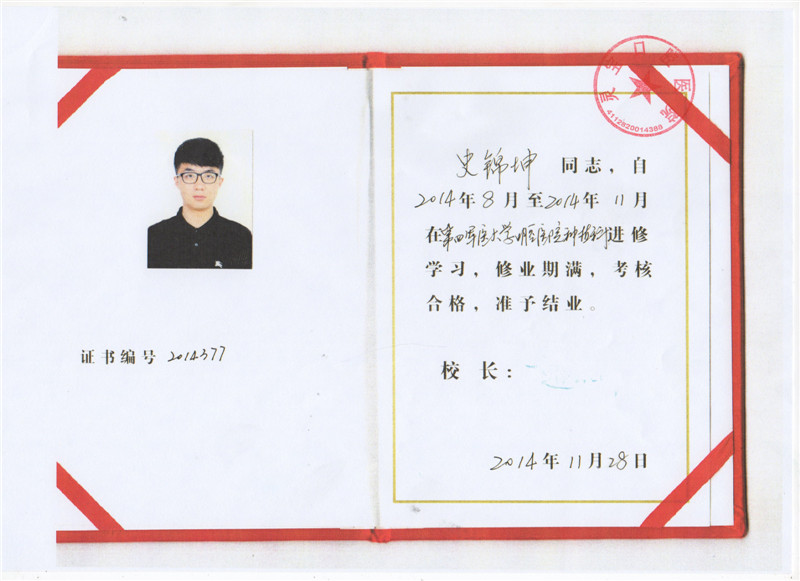 证书编号 2014377
史锦坤 同志，自
2014年8月至2014年 11月
在第四军医大学口腔医院种植科进修
学习，修业期满，考核
合格，准予结业。
校 长：
2014年11月28日
4112820014389